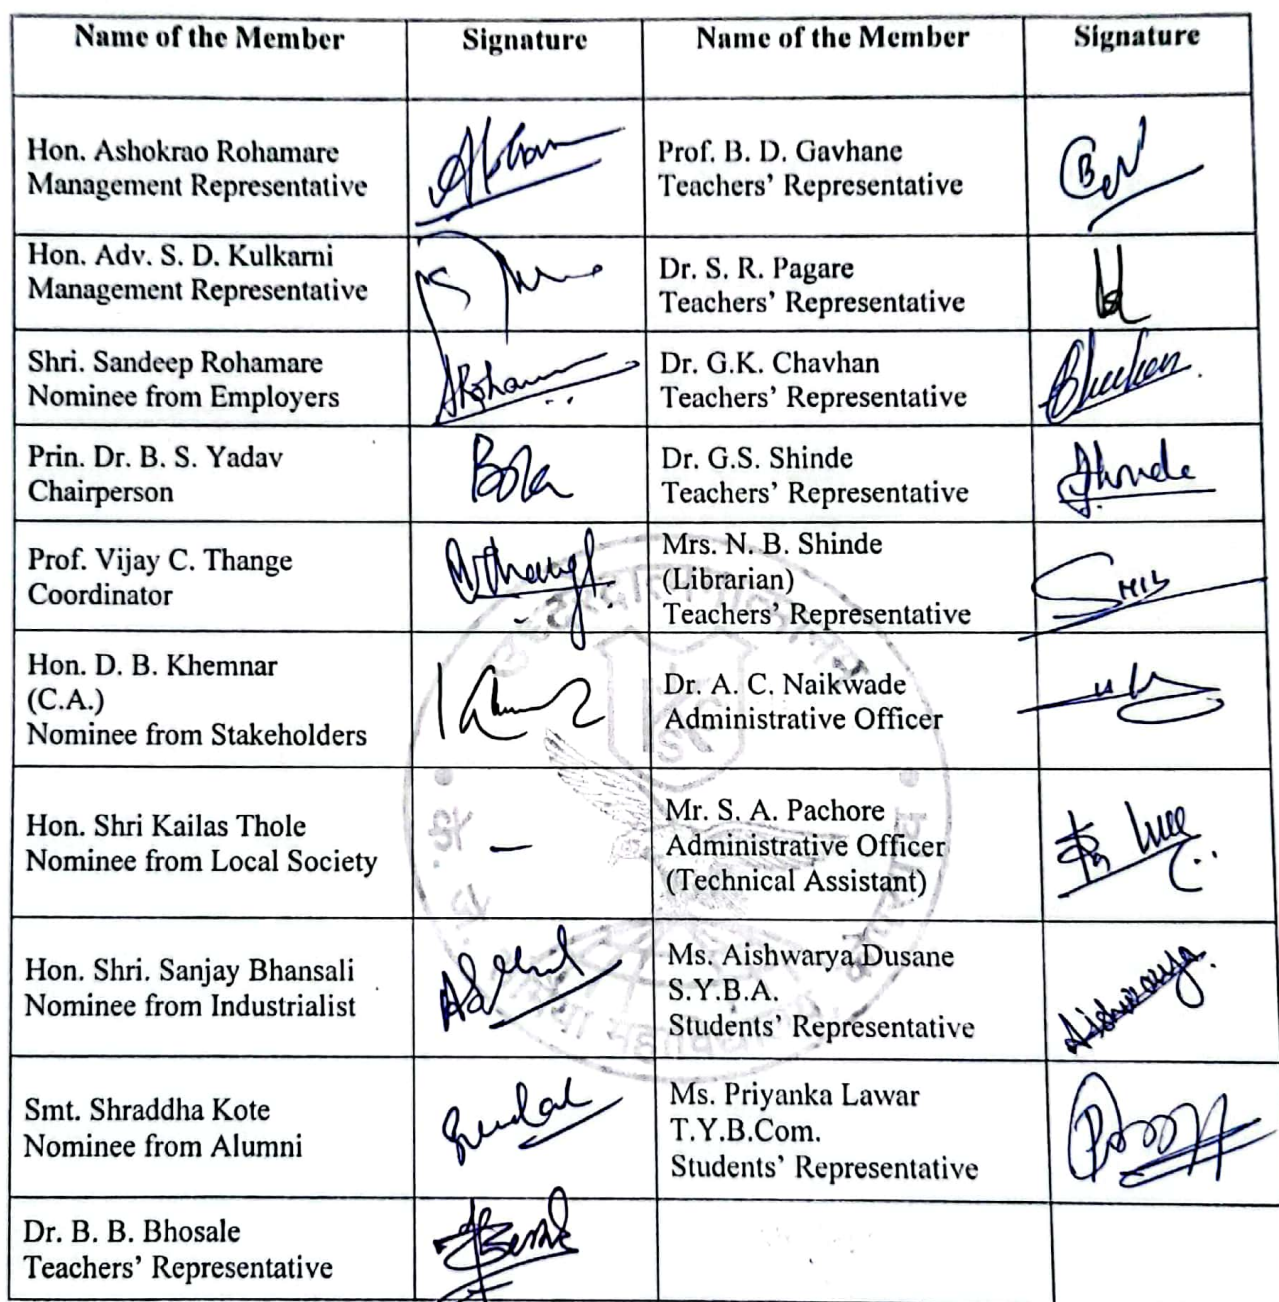 Name of the Member Signature Name of the Member Signature
Hon. Ashokrao Rohamare
Management Representative
Prof. B. D. Gavhane
Teachers' Representative
Hon. Adv. S. D. Kulkarni
Management Representative
Dr. S. R. Pagare
Teachers' Representative
Shri. Sandeep Rohamare
Nominee from Employers
Dr. G.K. Chavhan
Teachers' Representative
Prin. Dr. B. S. Yadav
Chairperson
Dr. G.S. Shinde
Teachers' Representative
Prof. Vijay C. Thange
Coordinator
Mrs. N. B. Shinde
(Librarian)
Teachers' Representative
Hon. D. B. Khemnar
(C.A.)
Nominee from Stakeholders
Dr. A. C. Naikwade
Administrative Officer
Hon. Shri Kailas Thole
Nominee from Local Society
–
Mr. S. A. Pachore
Administrative Officer
(Technical Assistant)
Hon. Shri. Sanjay Bhansali
Nominee from Industrialist
Ms. Aishwarya Dusane
S.Y.B.A.
Students' Representative
Aishwarya.
Smt. Shraddha Kote
Nominee from Alumni
Ms. Priyanka Lawar
T.Y.B.Com.
Students' Representative
Dr. B. B. Bhosale
Teachers' Representative